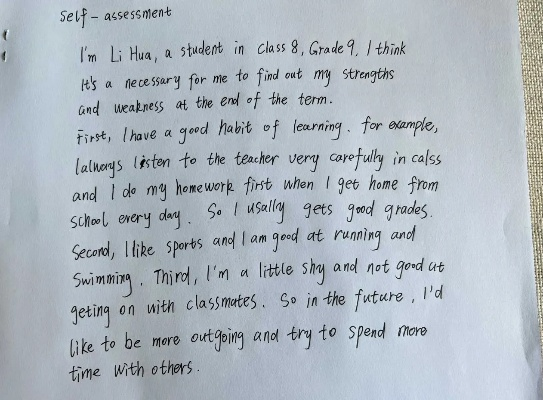 Self-assessment
I'm Li Hua, a student in Class 8, Grade 9. I think
it's a necessary for me to find out my strengths
and weakness at the end of the term.
First, I have a good habit of learning. for example,
I always listen to the teacher very carefully in calss
and I do my homework first when I get home from
school every day. So I usally gets good grades.
Second, I like sports and I am good at running and
Swimming. Third, I'm a little shy and not good at
geting on with classmates. So in the future, I'd
like to be more outgoing and try to spend more
time with others.